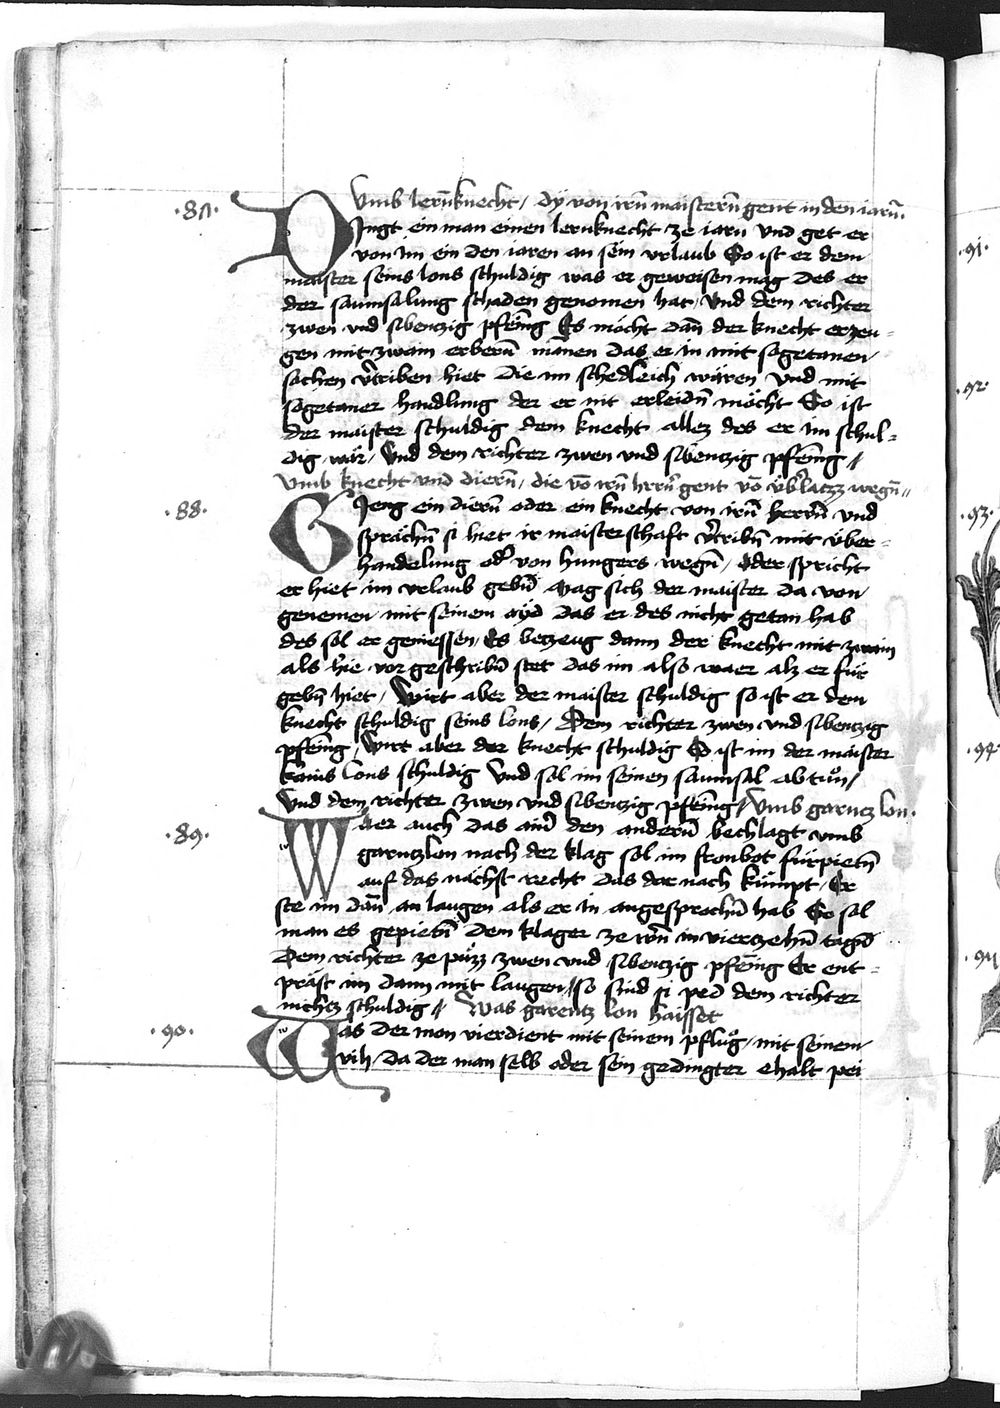 ·87· Vmb lernknecht / dÿ von irn̄ maistern̄ gent in den iarn̄·
Dingt ein man einen lernknecht ze iarn vnd get er
von im ein den iaren an sein vrlaub So ist er dem
maister seins lons schuldig was er geweisen mag des er
der saumsalung schaden genomen hat / Vnd dem richter
zwen vnd sibenzig pfēing Es möcht dan̄ der knecht erzeu-
gen mit zwain erbern̄ man̄en das er in mit sogetanen
sachen v̄triben hiet die im schedleich wären Vnd mit
sogetaner handlung der er nit erleidn̄ möcht So ist
der maister schuldig dem knecht allez des er im schul-
dig wär / Vnd dem richter zwen vnd sibentzig pfēing //
Vmb knecht vnd diern̄ / die vō irn̄ hrrn̄ gent vō üb̄latzz wegn̄ //
·88· Gieng ein diern̄ oder ein knecht von irn̄ herrn̄ vnd
sprächn̄ si hiet ir maisterschaft v̄tribn̄ mit über-
handelung od̄ von hungers wegn̄ / oder spricht
er hiet im vrlaub gebn̄ Mag sich der maister da von
genemen mit seinem ayd das er des nicht getan hab
des sol er geniessen / Es betzeug dann der knecht mit zwain
als hie vor geschribn̄ stet das im also waer alz er für
gebn̄ hiet / Wirt aber der maister schuldig so ist er dem
knecht schuldig seins lons / Dem richter zwen vnd sibentzig
pfēing / Wirt aber der knecht schuldig So ist im der maister
kains lons schuldig Vnd sol im seinen saumsal abtuͦn /
Vnd dem richter zwen vnd sibentzig pfēing // Vmb garntz lon·
·89· Waer auch das ain̄ den andern̄ bechlagt vmb
garntzlon nach der klag sol im fronbot fürpietn̄
auf das nächst recht das dar nach kümpt / Er
ste im dan̄ an laugen als er in angesprochn̄ hab So sol
man es gepietn̄ Dem klager ze wrn̄ in viertzehn̄ tagn̄
Dem richter ze puͤzz zwen vnd sibentzig pfēing Er ent-
präst im dann mit laugen // so sind si ped dem richter
nichtz schuldig // Was garentz lon haisset
·90· Was der mon vierdient mit seinem pfluͦg / mit seinem
vih / da der man selb oder sein gedingter ehalt pei
·91·
·92·
·93·
·94·